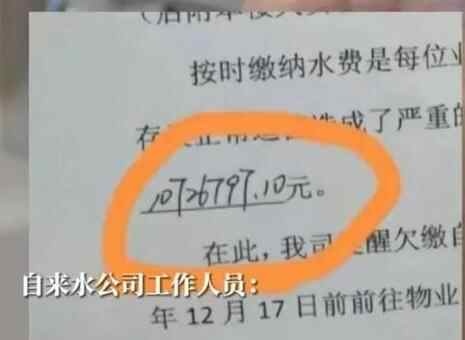 按时缴纳水费是每位业
造成了严重的
10726797.10元。
在此，我司提醒欠缴自
自来水公司工作人员：
年12月17日前前往物业